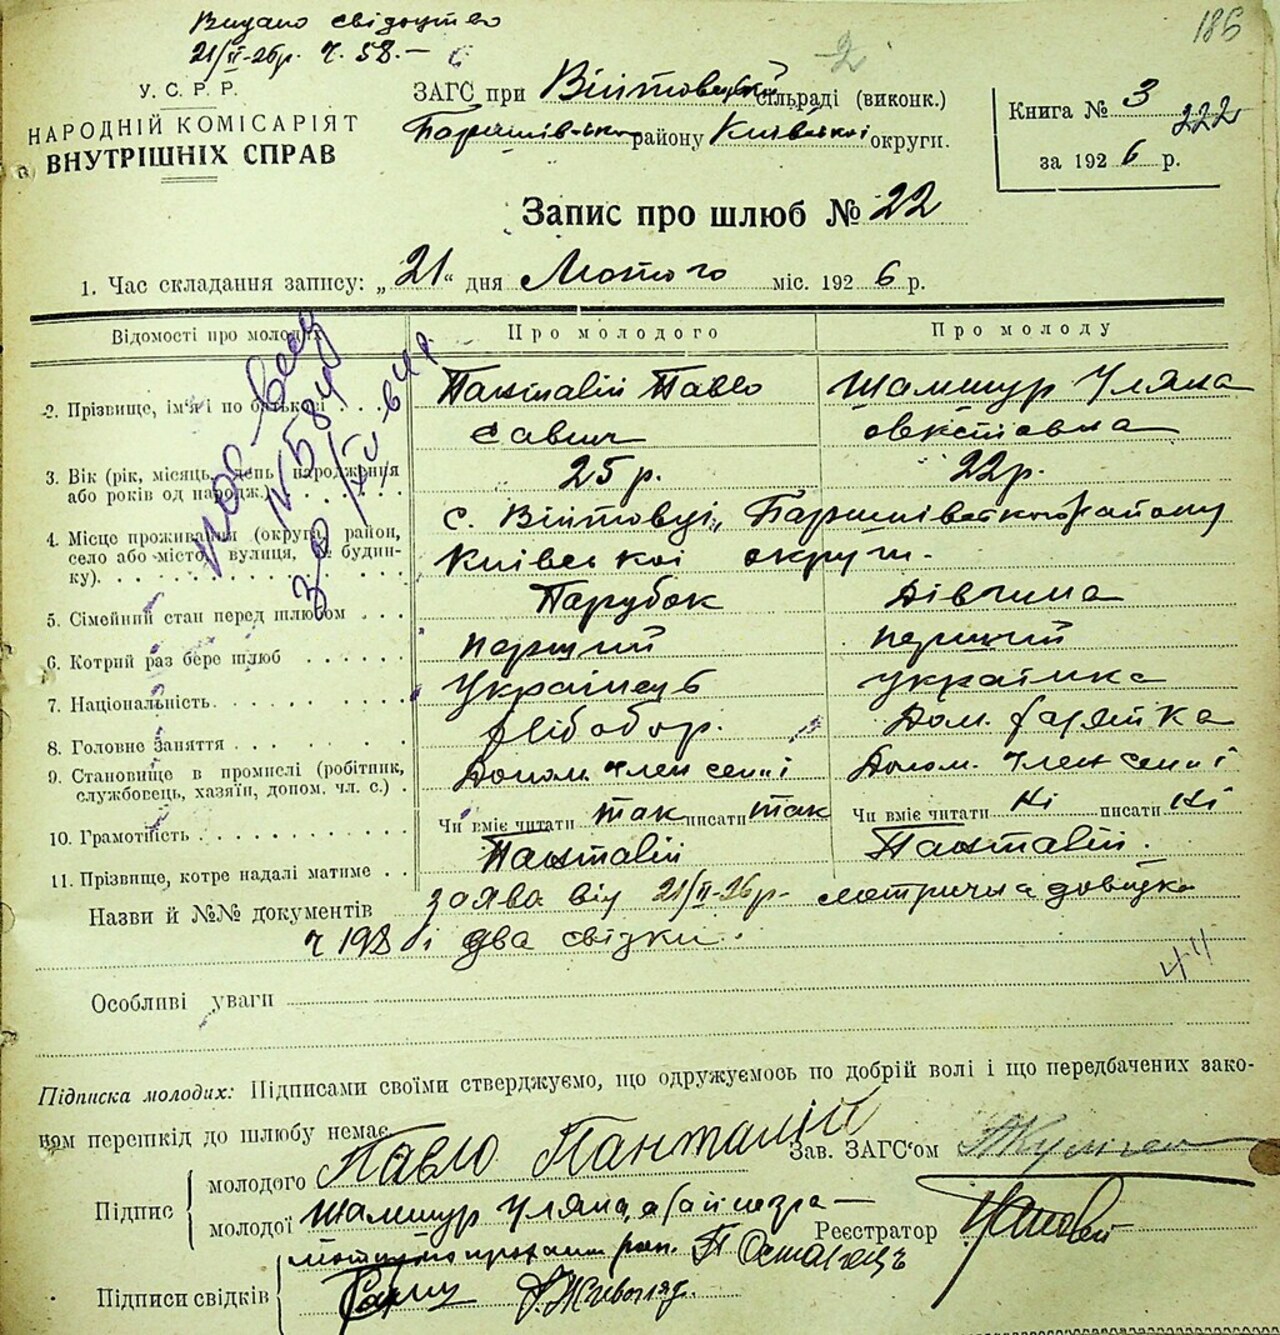 Видано свідоцтво
21/II-26р. Ч. 58.—
186
У. С. Р. Р.
НАРОДНІЙ КОМІСАРІЯТ
ВНУТРІШНІХ СПРАВ
ЗАГС при Війтовецькій сільраді (виконк.)
Баришівського району Київської округи.
Книга № 3
222
за 1926 р.
Запис про шлюб № 22
1. Час складання запису: „21“ дня Лютого міс. 1926 р.
Відомості про молодих
Про молодого
Про молоду
2. Прізвище, ім'я і по батькові . . . .
Панталій Павло
Савич
Шамшур Уляна
Овксіовна
3. Вік (рік, місяць, день народження
або років од народж.) . . . . . . .
25 р.
22 р.
4. Місце проживання (округа, район,
село або місто, вулиця, № будин-
ку). . . . . . . . . . . . . .
с. Війтовці, Баришівського району
Київської округи.
5. Сімейний стан перед шлюбом . . .
Парубок
Дівчина
6. Котрий раз бере шлюб . . . . . .
перший
перший
7. Національність. . . . . . . . . .
Українець
українка
8. Головне заняття . . . . . . . . .
хлібобор.
Дом. хазяйка
9. Становище в промислі (робітник,
службовець, хазяїн, допом. чл. с.) .
Допом. член семї
Допом. член семї
10. Грамотність . . . . . . . . . . .
Чи вміє читати так писати так
Чи вміє читати ні писати ні
11. Прізвище, котре надалі матиме . .
Панталій
Панталій.
Назви й №№ документів заява від 21/II-26р. метрична довідка
ч 198 і два свідки.
44
Особливі уваги
Підписка молодих: Підписами своїми стверджуємо, що одружуємось по добрій волі і що передбачених зако-
ном перешкід до шлюбу немає.
Підпис
молодого Павло Панталій
Зав. ЗАГС'ом
молодої Шамшур Уляна, а за її неgра-
мотністю прохання роз. П Остапець
Реєстратор
Підписи свідків